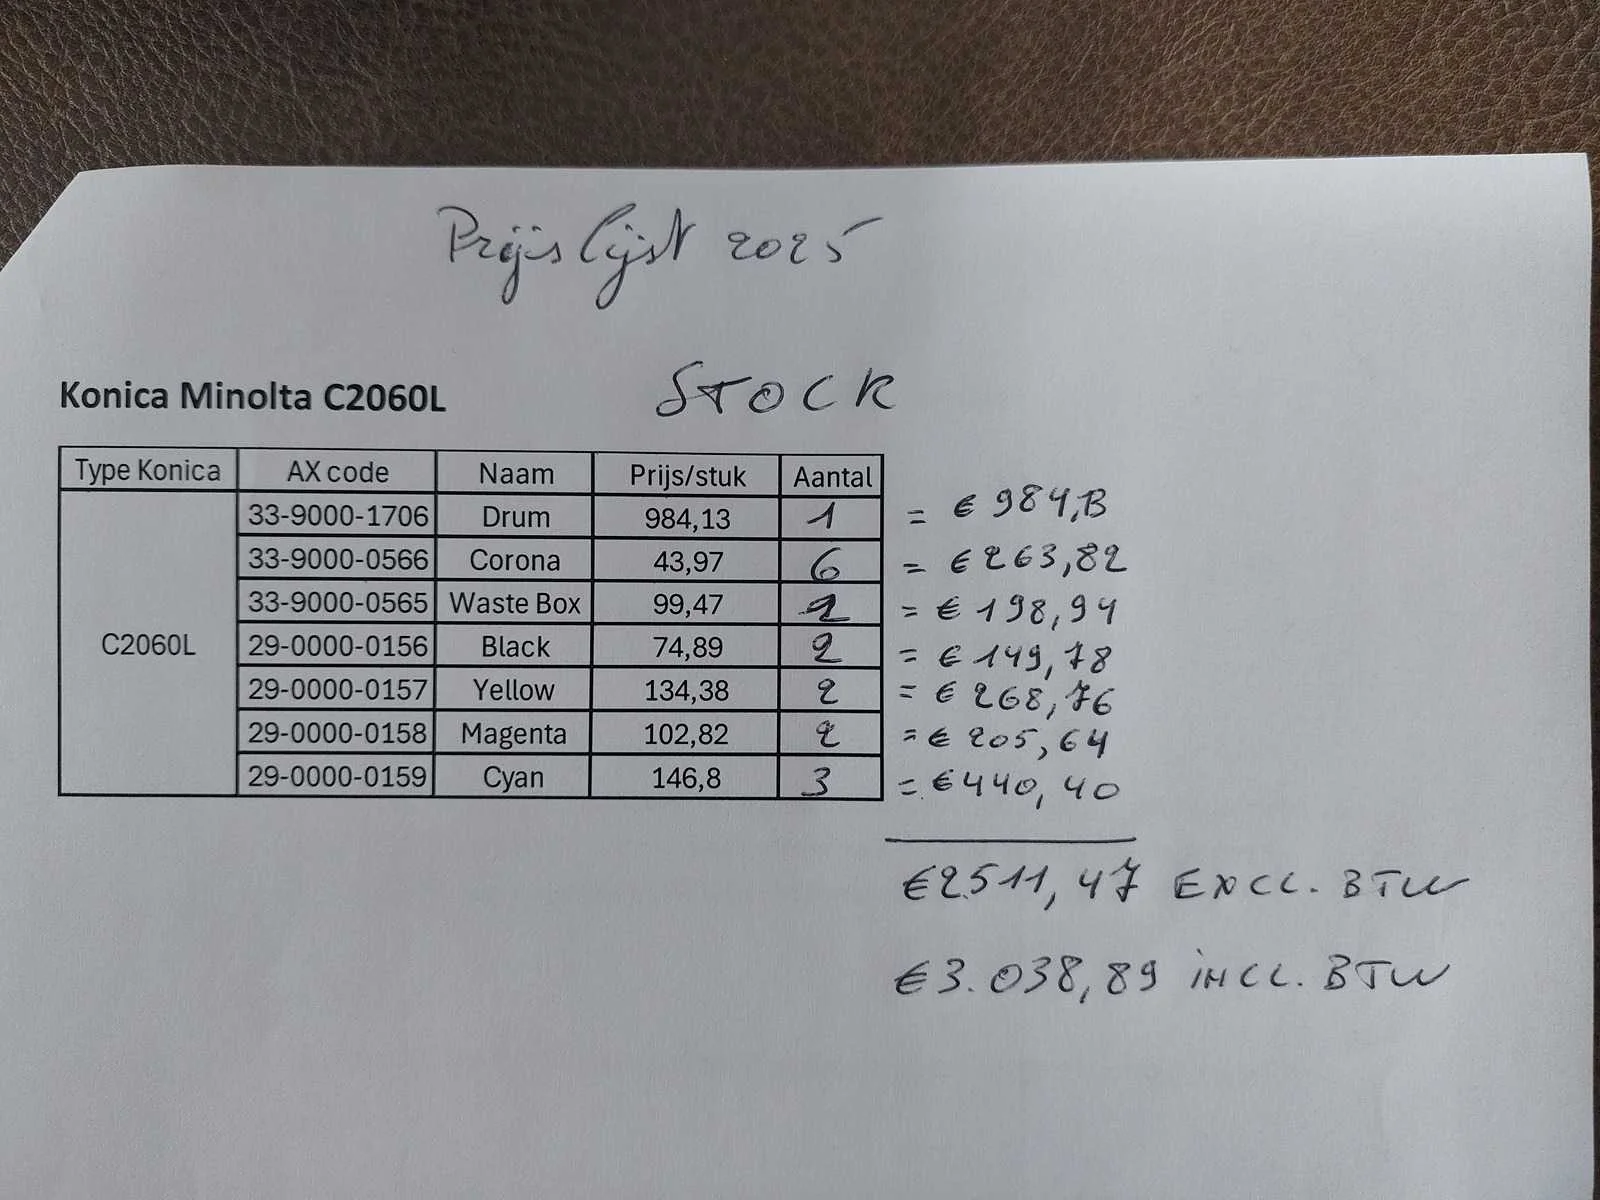 Prijslijst 2025
Konica Minolta C2060L STOCK
Type Konica AX code Naam Prijs/stuk Aantal
33-9000-1706 Drum 984,13 1 = € 984,13
33-9000-0566 Corona 43,97 6 = € 263,82
33-9000-0565 Waste Box 99,47 2 = € 198,94
C2060L 29-0000-0156 Black 74,89 2 = € 149,78
29-0000-0157 Yellow 134,38 2 = € 268,76
29-0000-0158 Magenta 102,82 2 = € 205,64
29-0000-0159 Cyan 146,8 3 = € 440,40
€2511,47 EXCL. BTW
€3.038,89 INCL. BTW